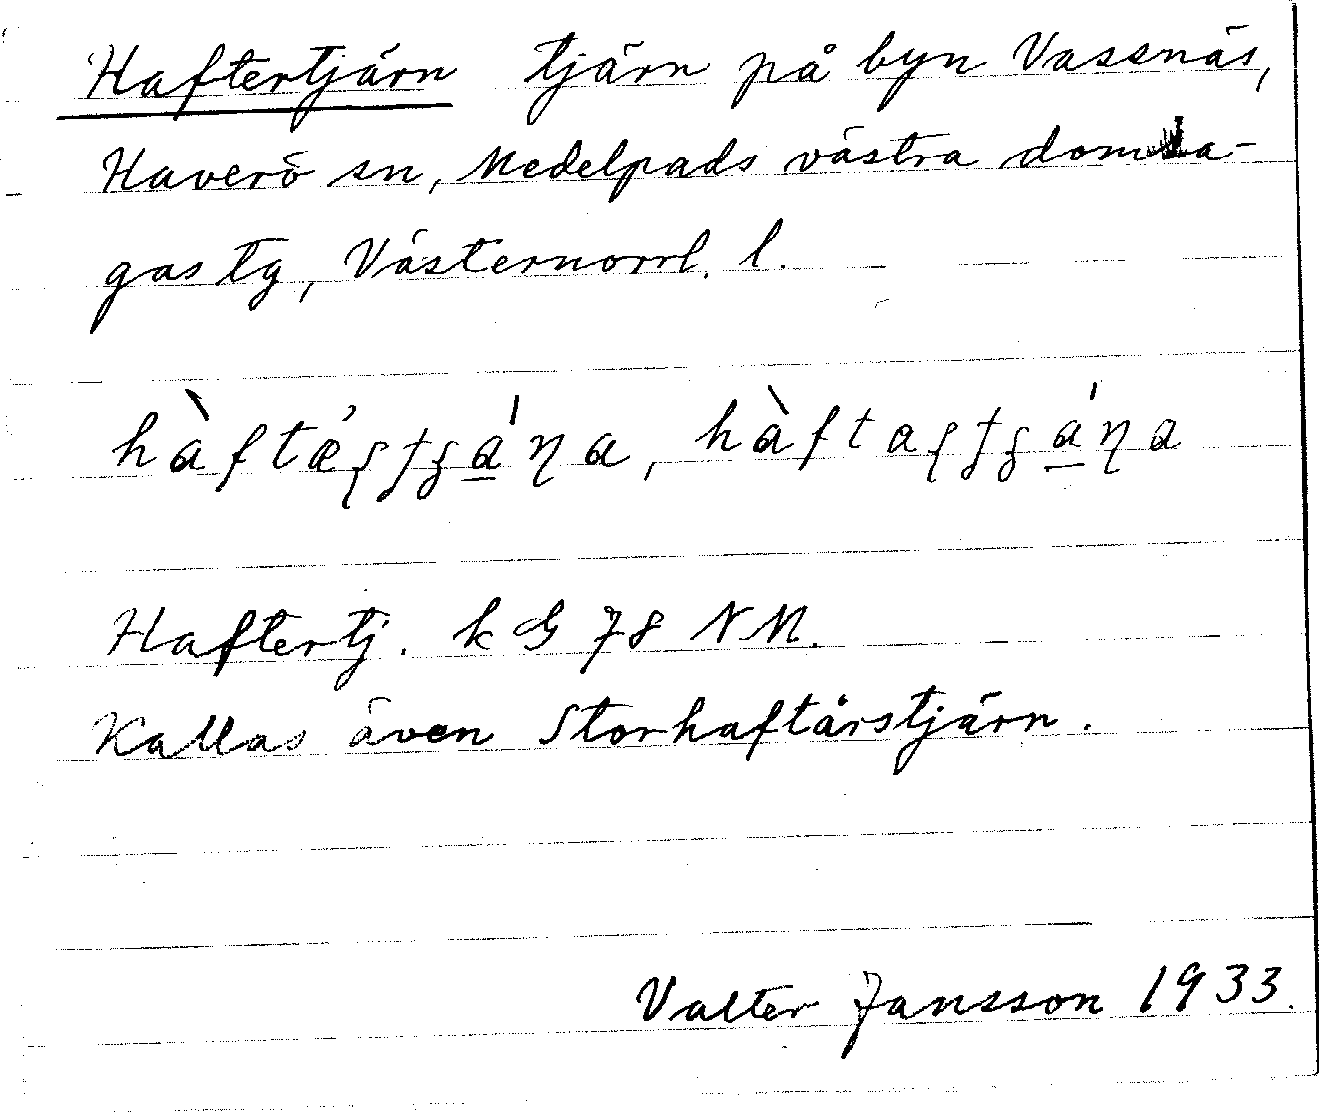 Haftertjärn tjärn på byn Vassnäs,
Haverö sn, Medelpads västra domsa-
gas tg, Västernorrl. l.
Haftertj. k G 78 NM.
Kallas även Storhaftårstjärn.
Valter Jansson 1933.